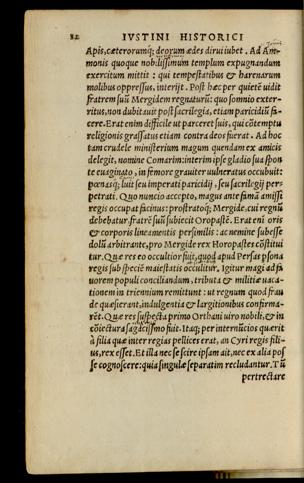 82 IVSTINI HISTORICI
Apis, cæterorumq; deorum ædes dirui iubet. Ad Am-
monis quoque nobilissimum templum expugnandum
exercitum mittit: qui tempestatibus & harenarum
molibus oppressus, interijt. Post hæc per quietẽ uidit
fratrem suũ Mergidem regnaturũ: quo somnio exter-
ritus, non dubitauit post sacrilegia, etiam paricidiũ fa-
cere. Erat enim difficile ut parceret suis, qui cõtemptu
religionis grassatus etiam contra deos fuerat. Ad hoc
tam crudele ministerium magum quendam ex amicis
delegit, nomine Comarim: interim ipse gladio sua spon
te euaginato, in femore grauiter uulneratus occubuit:
pœnasq; luit seu imperati paricidij, seu sacrilegij per-
petrati. Quo nuncio accepto, magus ante famã amissi
regis occupat facinus: prostratoq; Mergide, cui regnũ
debebatur, fratrẽ suũ subiecit Oropastẽ. Erat eni oris
& corporis lineamentis persimilis: ac nemine subesse
dolũ arbitrante, pro Mergide rex Horopastes cõstitui
tur. Quæ res eo occultior fuit, quod apud Persas psona
regis sub speciẽ maiestatis occulitur. Igitur magi ad fa
uorem populi conciliandum, tributa & militiæ uaca-
tionem in triennium remittunt: ut regnum quod frau
de quæsierant, indulgentia & largitionibus confirma-
rẽt. Quæ res suspecta primo Orthani uiro nobili, & in
cõiectura sagacissimo fuit. Itaq; per internũcios quærit
à filia quæ inter regias pellices erat, an Cyri regis fili-
us, rex esset. Et illa nec se scire ipsam ait, nec ex alia pos
se cognoscere: quia singulæ separatim recludantur. Tũ
pertrectare